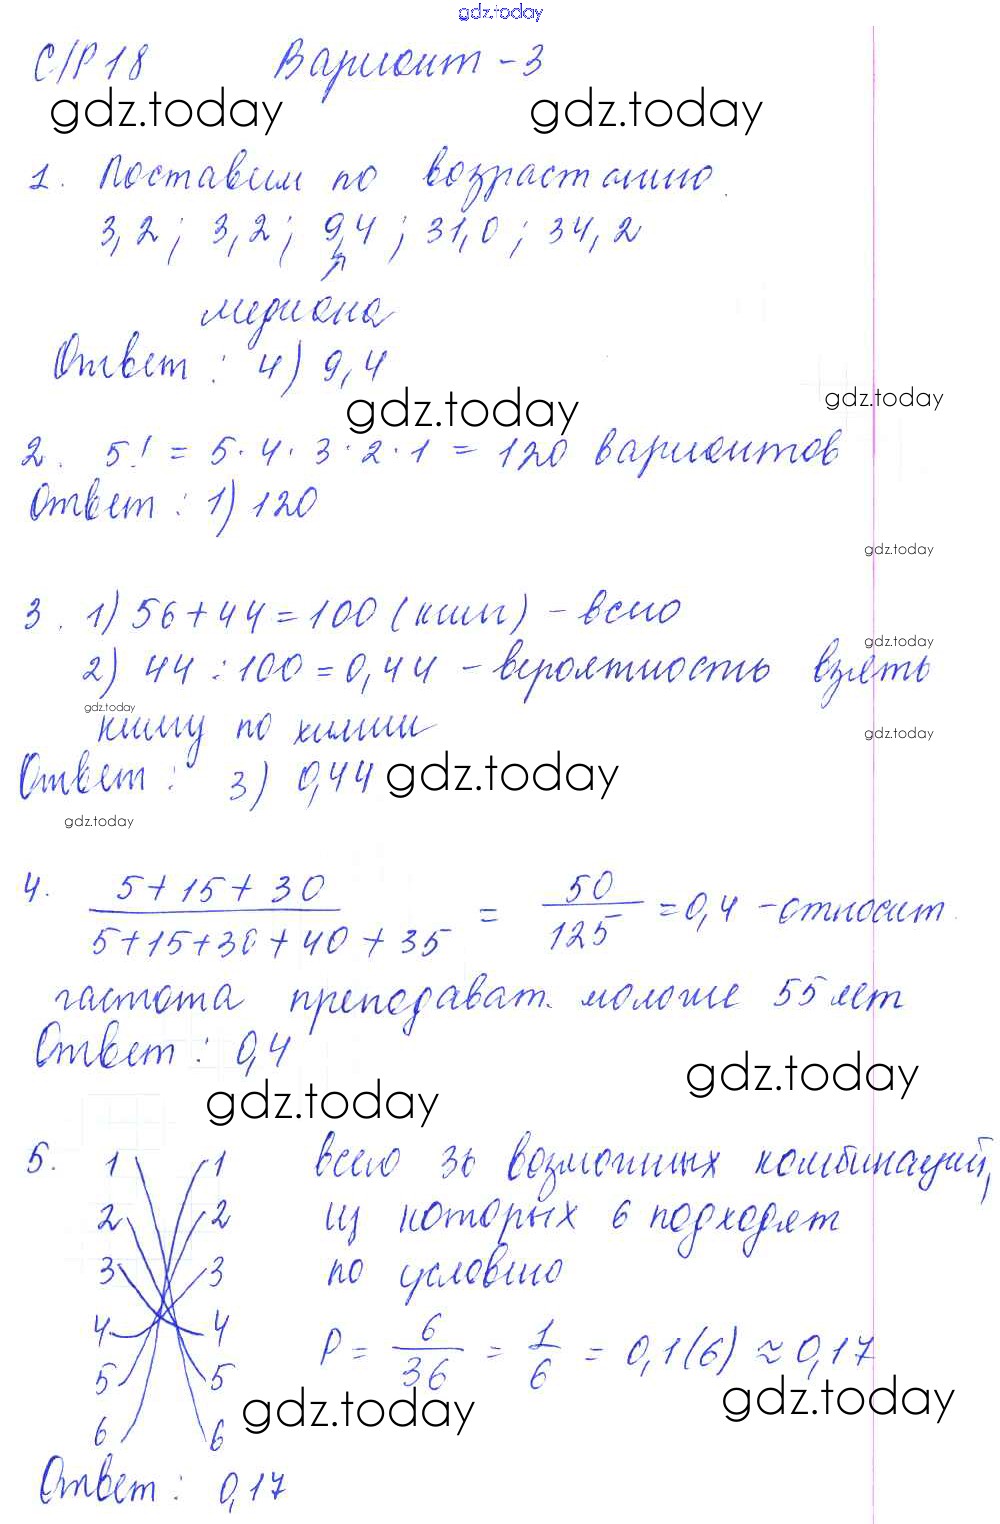 gdz.today
С/Р 18 Вариант - 3
gdz.today gdz.today
1. Поставим по возрастанию
3,2 ; 3,2 ; 9,4 ; 31,0 ; 34,2
медиана
Ответ : 4) 9,4
gdz.today gdz.today
2. 5! = 5 · 4 · 3 · 2 · 1 = 120 вариантов
Ответ : 1) 120
gdz.today
3. 1) 56 + 44 = 100 (книг) - всего
gdz.today
2) 44 : 100 = 0,44 - вероятность взять
gdz.today
книгу по химии
gdz.today
Ответ : 3) 0,44 gdz.today
gdz.today
4. 5 + 15 + 30 / 5 + 15 + 30 + 40 + 35 = 50 / 125 = 0,4 - относит.
частота преподават. моложе 55 лет
Ответ : 0,4
gdz.today gdz.today
5. 1 1 всего 36 возможных комбинаций,
2 2 из которых 6 подходят
3 3 по условию
4 4 P = 6/36 = 1/6 = 0,1(6) ≈ 0,17
5 5
gdz.today gdz.today
6 6
Ответ : 0,17